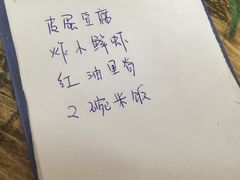 皮蛋豆腐
炸小鲜虾
红油里脊
2碗米饭